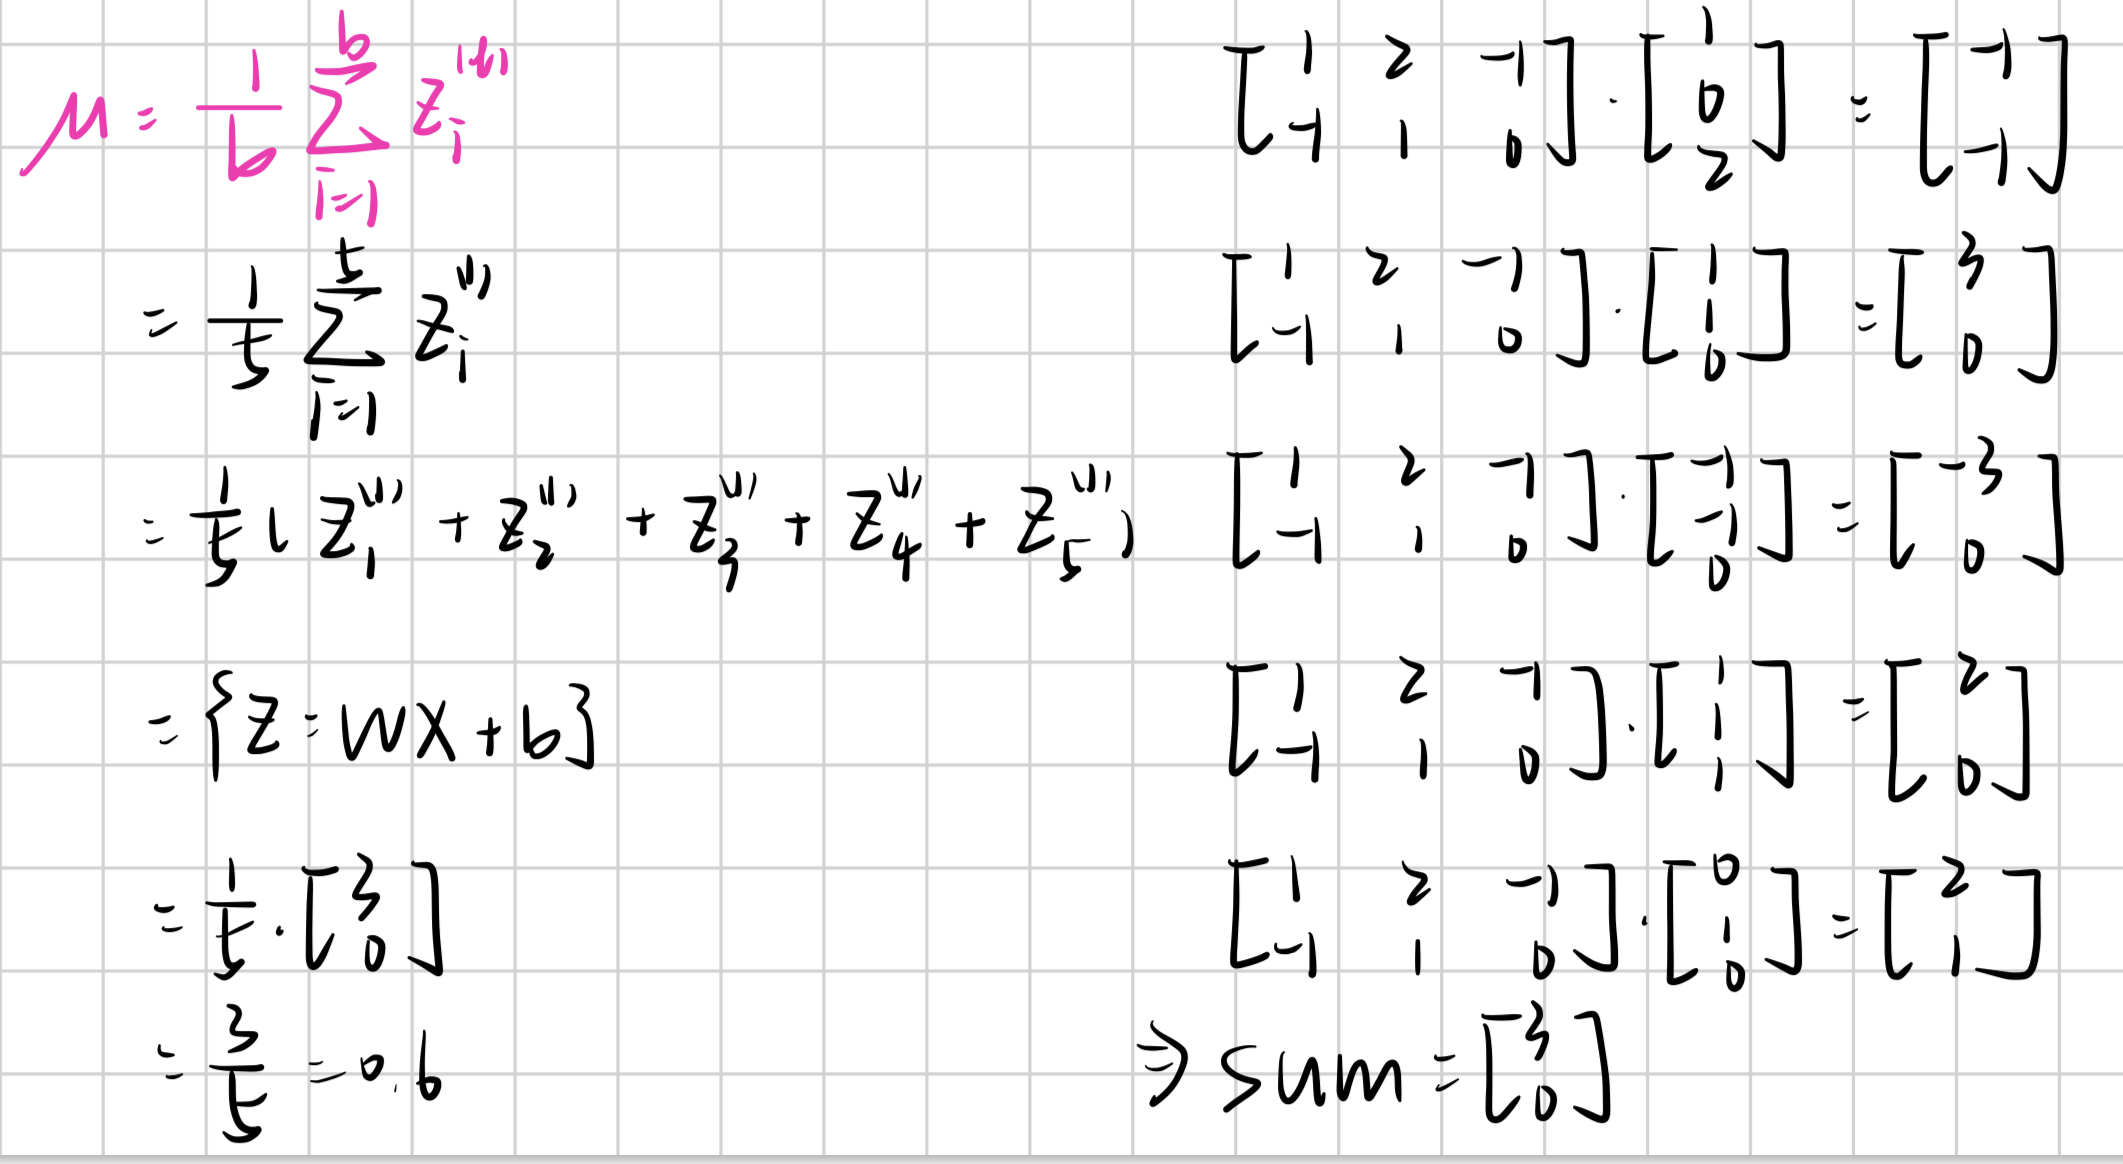 μ = 1/b ∑_{i=1}^{b} z_i^{(b)}
= 1/5 ∑_{i=1}^{5} z_i^{(1)}
= 1/5 ( z_1^{(1)} + z_2^{(1)} + z_3^{(1)} + z_4^{(1)} + z_5^{(1)} )
= { z = wx + b }
= 1/5 · [3; 0]
= 3/5 = 0.6
[1 2 -1; -1 1 0] · [1; 0; 2] = [-1; -1]
[1 2 -1; -1 1 0] · [1; 1; 0] = [3; 0]
[1 2 -1; -1 1 0] · [-1; -1; 0] = [-3; 0]
[1 2 -1; -1 1 0] · [1; 1; 1] = [2; 0]
[1 2 -1; -1 1 0] · [0; 1; 0] = [2; 1]
⇒ sum = [3; 0]